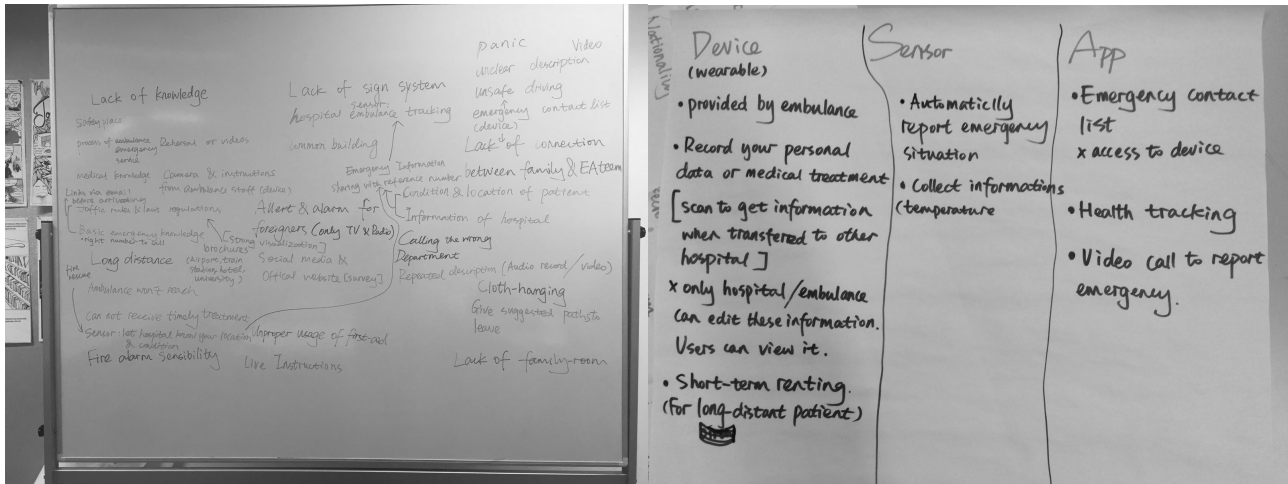 Lack of knowledge
Safety place
process of ambulance emergency service
Rehearsal or videos
medical knowledge
Camera & instructions
from ambulance staff (device)
Links via email
before arriving
Traffic rules & laws regulations
Basic emergency knowledge
• right number to call
[strong visualization]
brochures
(Airport, train
station, hotel,
university)
Long distance
fire rescue
Ambulance won't reach
Can not receive timely treatment
Sensor: let hospital know your location
& condition
Fire alarm sensibility
Live Instructions
Lack of sign system
sensor:
hospital ambulance tracking
common building
Emergency Information
sharing with reference number
Allert & alarm for
foreigners (only TV & Radio)
Social media &
Offical website [survey]
Unproper usage of first-aid
panic
Video
unclear description
unsafe driving
emergency contact list
(device)
Lack of connection
between family & EA team
Condition & location of patient
Information of hospital
Calling the wrong
Department
Repeated description (Audio record/video)
Cloth-hanging
Give suggested paths to
leave
Lack of family-room
Nationality
Device
(wearable)
• provided by embulance
• Record your personal
data or medical treatment
[scan to get information
when transferred to other
hospital]
x only hospital/embulance
can edit these information.
Users can view it.
• Short-term renting.
(For long-distant patient)
Sensor
• Automaticlly
report emergency
situation
• Collect informations
(temperature
App
• Emergency contact
list
x access to device
• Health tracking
• Video call to report
emergency.